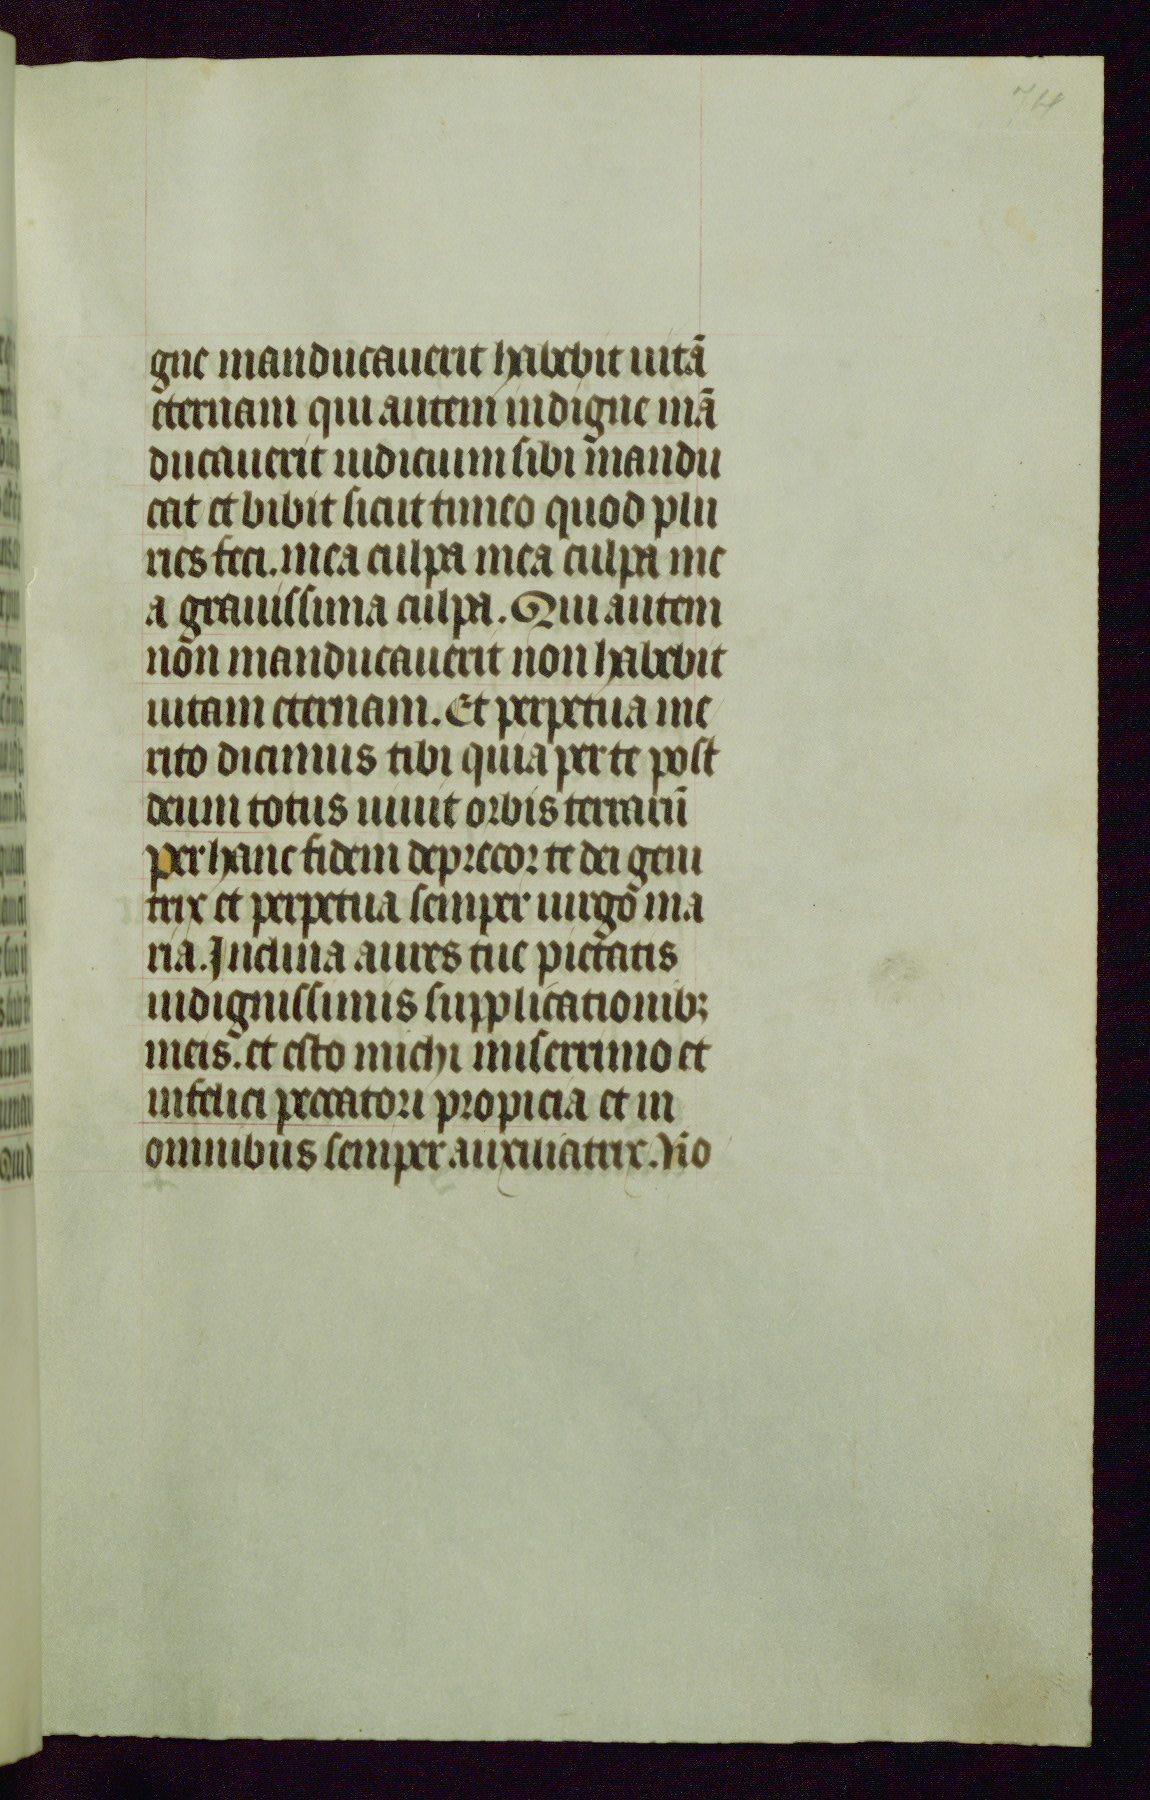 74
gne manducauerit habebit uitã
eternam qui autem indigne mã
ducauerit iudicium sibi mandu
cat et bibit sicut timeo quod plu
ries feci. mea culpa mea culpa me
a grauissima culpa. Qui autem
non manducauerit non habebit
uitam eternam. Et perpetua me
rito dicimus tibi quia per te post
deum totus uiuit orbis terrarũ
per hanc fidem deprecor te dei geni
trix et perpetua semper uirgo ma
ria. Inclina aures tue pietatis
indignissimis supplicationibꝫ
meis. et esto michi miserrimo et
infelici peccatori propicia et in
omnibus semper auxiliatrix. No